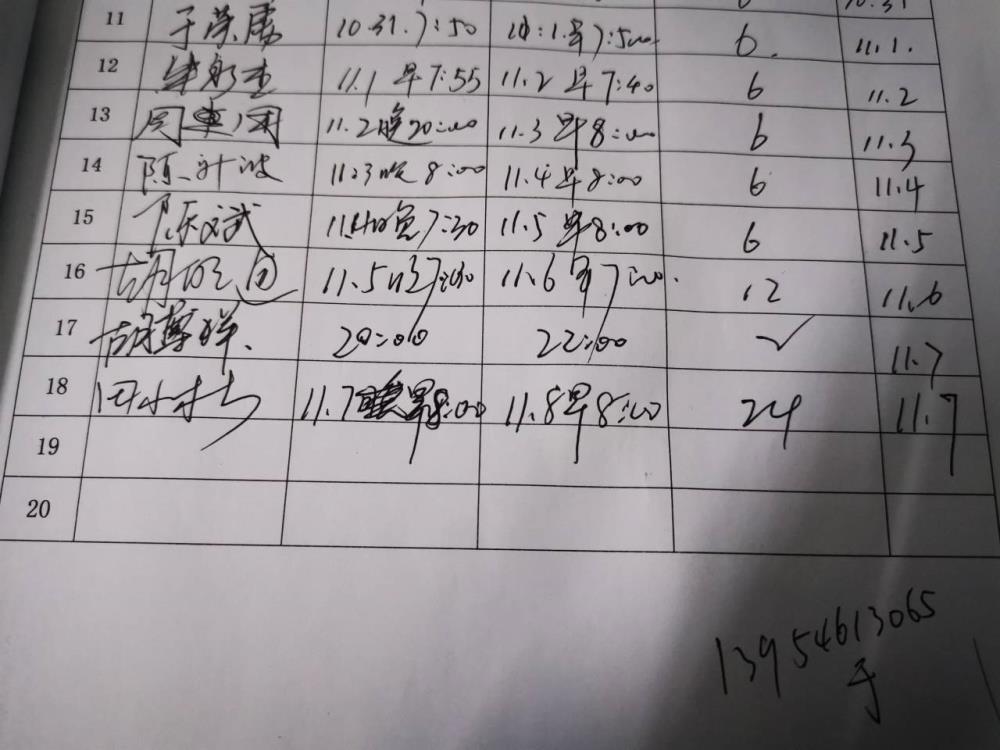 10.31
11 于荣 10.31.7:50 7:500 6. 11.1.
12 11.1 早7:55 11.2 早7:40 6 11.2
13 周 11.2晚20:00 11.3 早8:00 6 11.3
14 陈 11.3晚 8:00 11.4早8:00 6 11.4
15 陈文斌 11.4晚7:30 11.5 早8:00 6 11.5
16 胡 11.5 11.6 早7:00. 12 11.6
17 胡 祥. 20:00 22:00 ✓ 11.7
18 田 11.7 早8:00 11.8早8:00 24 11.7
19
20
13954613065
于